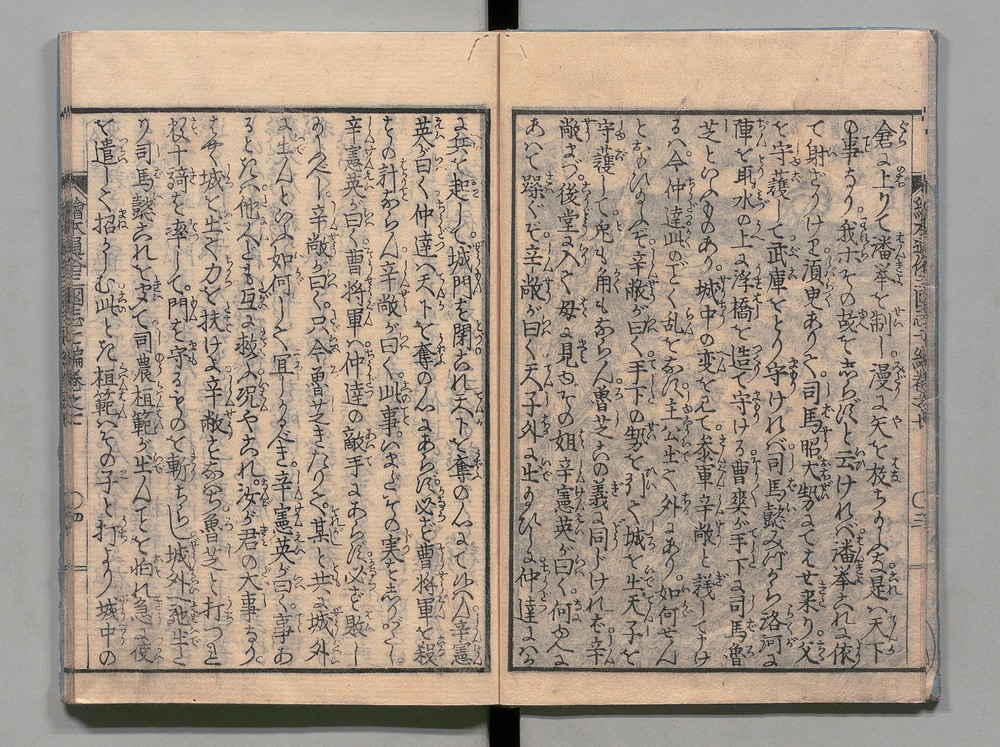 倉に上りて潘挙を制し漫に矢を放ちかふな是ハ天下
の事なり我ホその故を志らずと云けれバ潘挙これに依
て射ざりけり須臾ありて司馬昭大勢にてはせ来り父
を守護して武庫をとり守けれバ司馬懿みづから洛河に
陣を取水の上に浮橋を造て守ける曹爽が手下に司馬魯
芝といふものあり城中の変をみて参軍辛敞と議しける
ハ今仲達此のごく乱をなす主公出て外にあり如何せん
とおもひしに辛敞が曰く手下の勢をひきて城を出天子を
守護して兎も角もならん魯芝この義に同じけれバ辛
敞まづ後堂に入て母に見ゆその姐辛憲英が曰く何ゆへに
あハて躁ぐぞ辛敞が曰く天子外に出給ひしに仲達にハか
に兵を起して城門を閉られ天下を奪の心にて候ハん辛憲
英が曰く仲達ハ天下を奪の心にあらず必ず曹将軍を殺
さんの計ならん辛敞が曰く此事いまだその実を志らざるなり
辛憲英が曰く曹将軍ハ仲達の敵手にあらず必ず敗し
かるべし辛敞が曰く只今魯芝きたりて某と共に城外
に出んといふ如何して宜しかるべき辛憲英が曰く事あ
るときハ他人とも互に救ふ況やこれハ汝が君の大事なり
はやく城を出て力を扶けよ辛敞すなハち魯芝と打つれ
数十騎を率して門を守るものを斬ちらし城外へ馳出た
り司馬懿これを聞て司農桓範が出んことを怕れ急に使
を遣して招かしむ此とき桓範ハその子と打より城中の
繪本通俗三國志七編巻之十
〇三
〇四